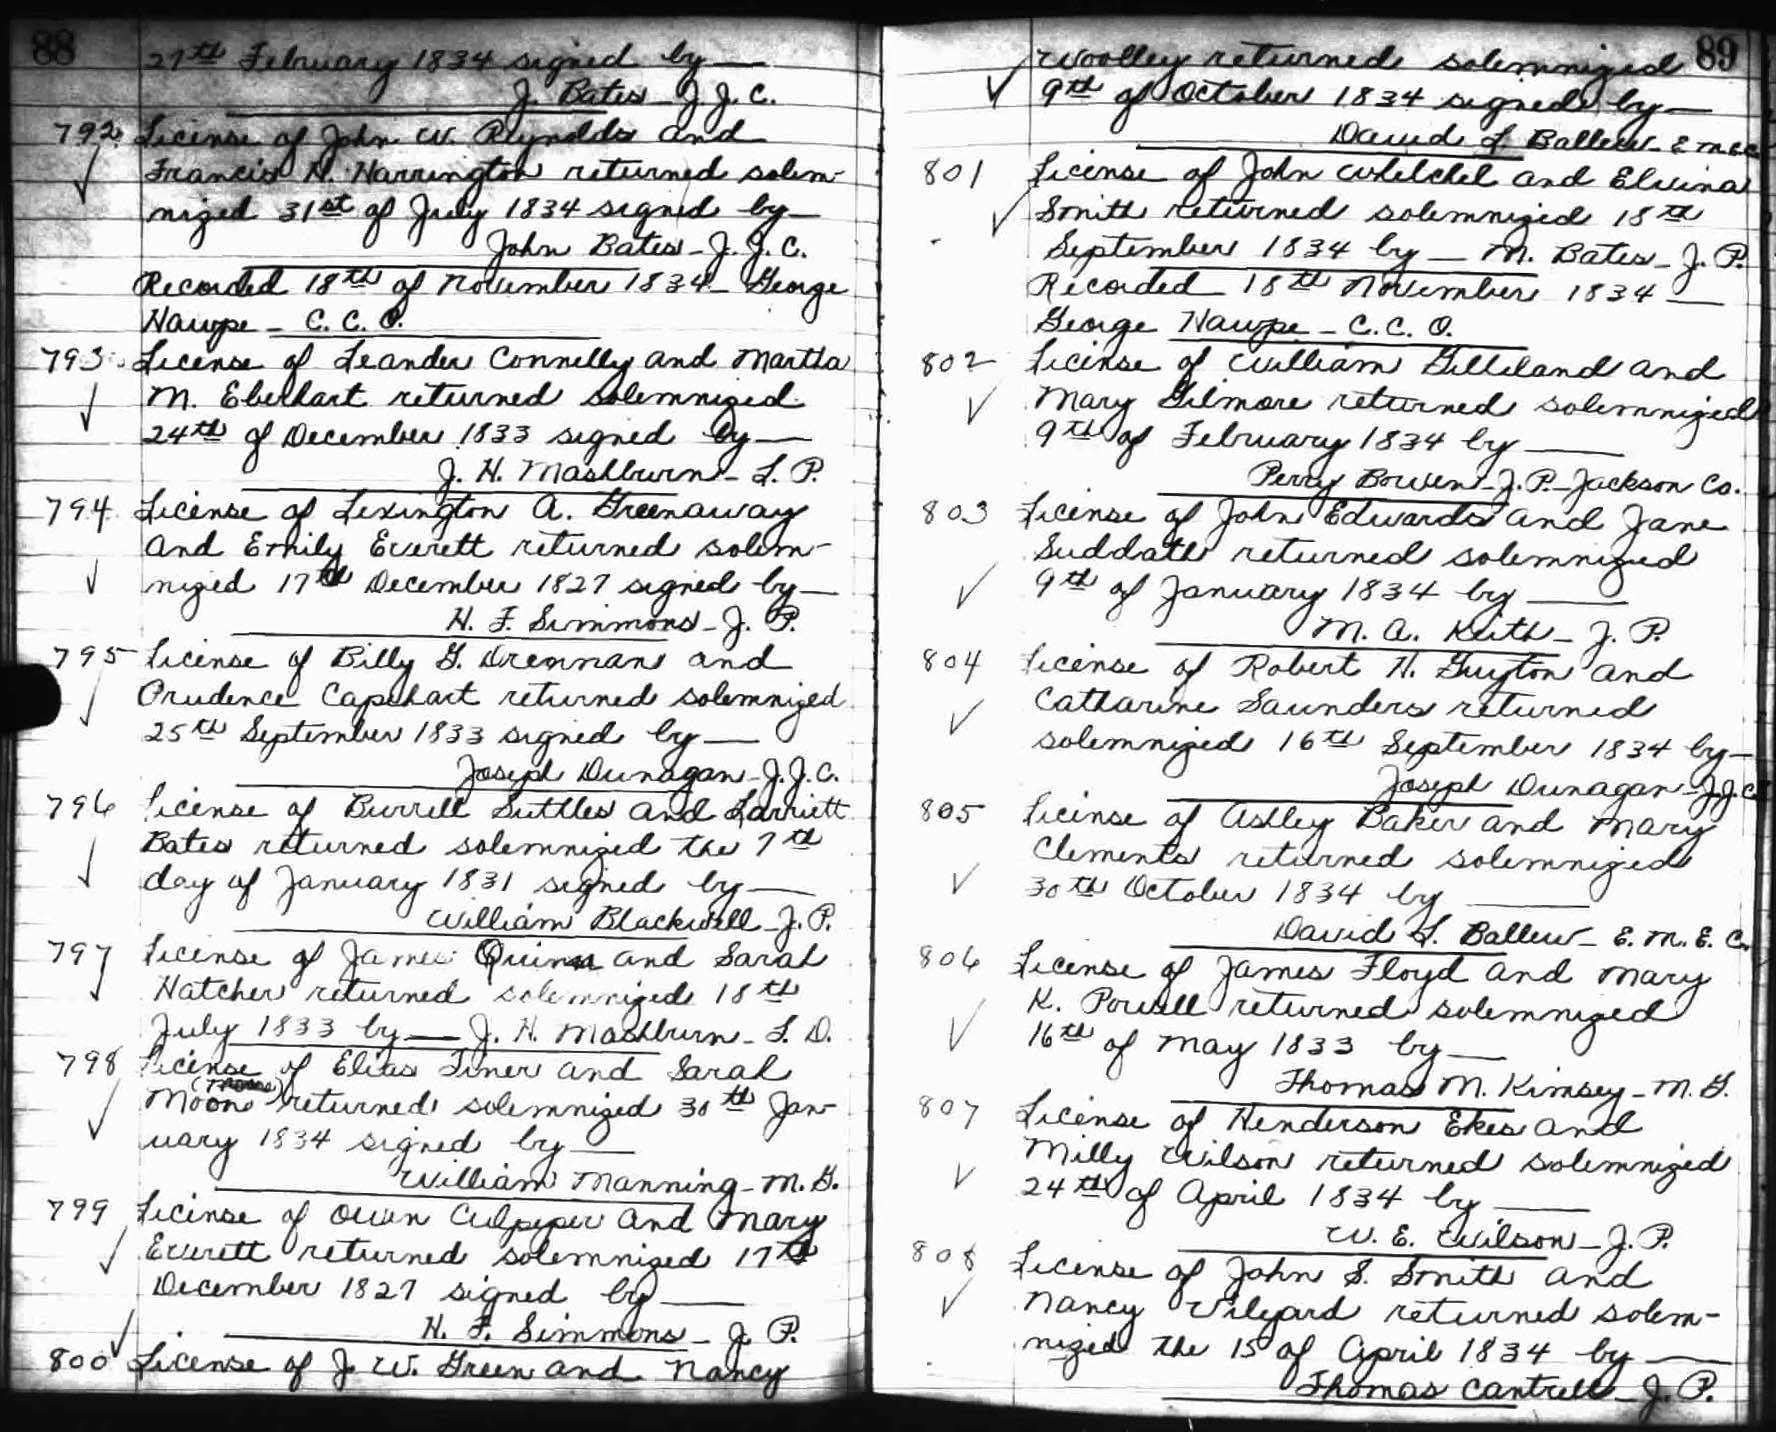 88
27th February 1834 signed by —
J. Bates - J. J. C.
792 License of John W. Reynolds and
Francis N. Harrington returned solem-
nized 31st of July 1834 signed by —
John Bates - J. J. C.
Recorded 18th of November 1834 - George
Hawpe - C. C. O.
793 License of Leander Connelly and Martha
M. Eberhart returned solemnized
24th of December 1833 signed by —
J. H. Mashburn - L. P.
794 License of Lexington A. Greenaway
and Emily Everett returned solem-
nized 17th December 1827 signed by —
H. F. Simmons - J. P.
795 License of Billy G. Drennan and
Prudence Capehart returned solemnized
25th September 1833 signed by —
Joseph Dunagan - J. J. C.
796 License of Burrell Suttles and Harriett
Bates returned solemnized the 7th
day of January 1831 signed by —
William Blackwell - J. P.
797 License of James Quinn and Sarah
Hatcher returned solemnized 18th
July 1833 by — J. H. Mashburn - L. D.
798 License of Elias Tiner and Sarah
Moon returned solemnized 30th Jan-
uary 1834 signed by —
William Manning - M. G.
799 License of Owen Culpeper and Mary
Everett returned solemnized 17th
December 1827 signed by —
H. F. Simmons - J. P.
800 License of J. W. Green and Nancy
89
Woolley returned solemnized
9th of October 1834 signed by —
David L. Ballew - E. M. E. C.
801 License of John Whelchel and Elvina
Smith returned solemnized 18th
September 1834 by — M. Bates - J. P.
Recorded 18th November 1834 —
George Hawpe - C. C. O.
802 License of William Gilliland and
Mary Gilmore returned solemnized
9th of February 1834 by —
Perry Bowen - J. P. - Jackson Co.
803 License of John Edwards and Jane
Suddath returned solemnized
9th of January 1834 by —
M. A. Keith - J. P.
804 License of Robert H. Guyton and
Catharine Saunders returned
solemnized 16th September 1834 by —
Joseph Dunagan - J. J. C.
805 License of Astley Baker and Mary
Clements returned solemnized
30th October 1834 by —
David L. Ballew - E. M. E. C.
806 License of James Floyd and Mary
K. Powell returned solemnized
16th of May 1833 by —
Thomas M. Kimsey - M. G.
807 License of Henderson Ekes and
Milly Wilson returned solemnized
24th of April 1834 by —
W. E. Wilson - J. P.
808 License of John S. Smith and
Nancy Vilyard returned solem-
nized the 15 of April 1834 by —
Thomas Cantrell - J. P.